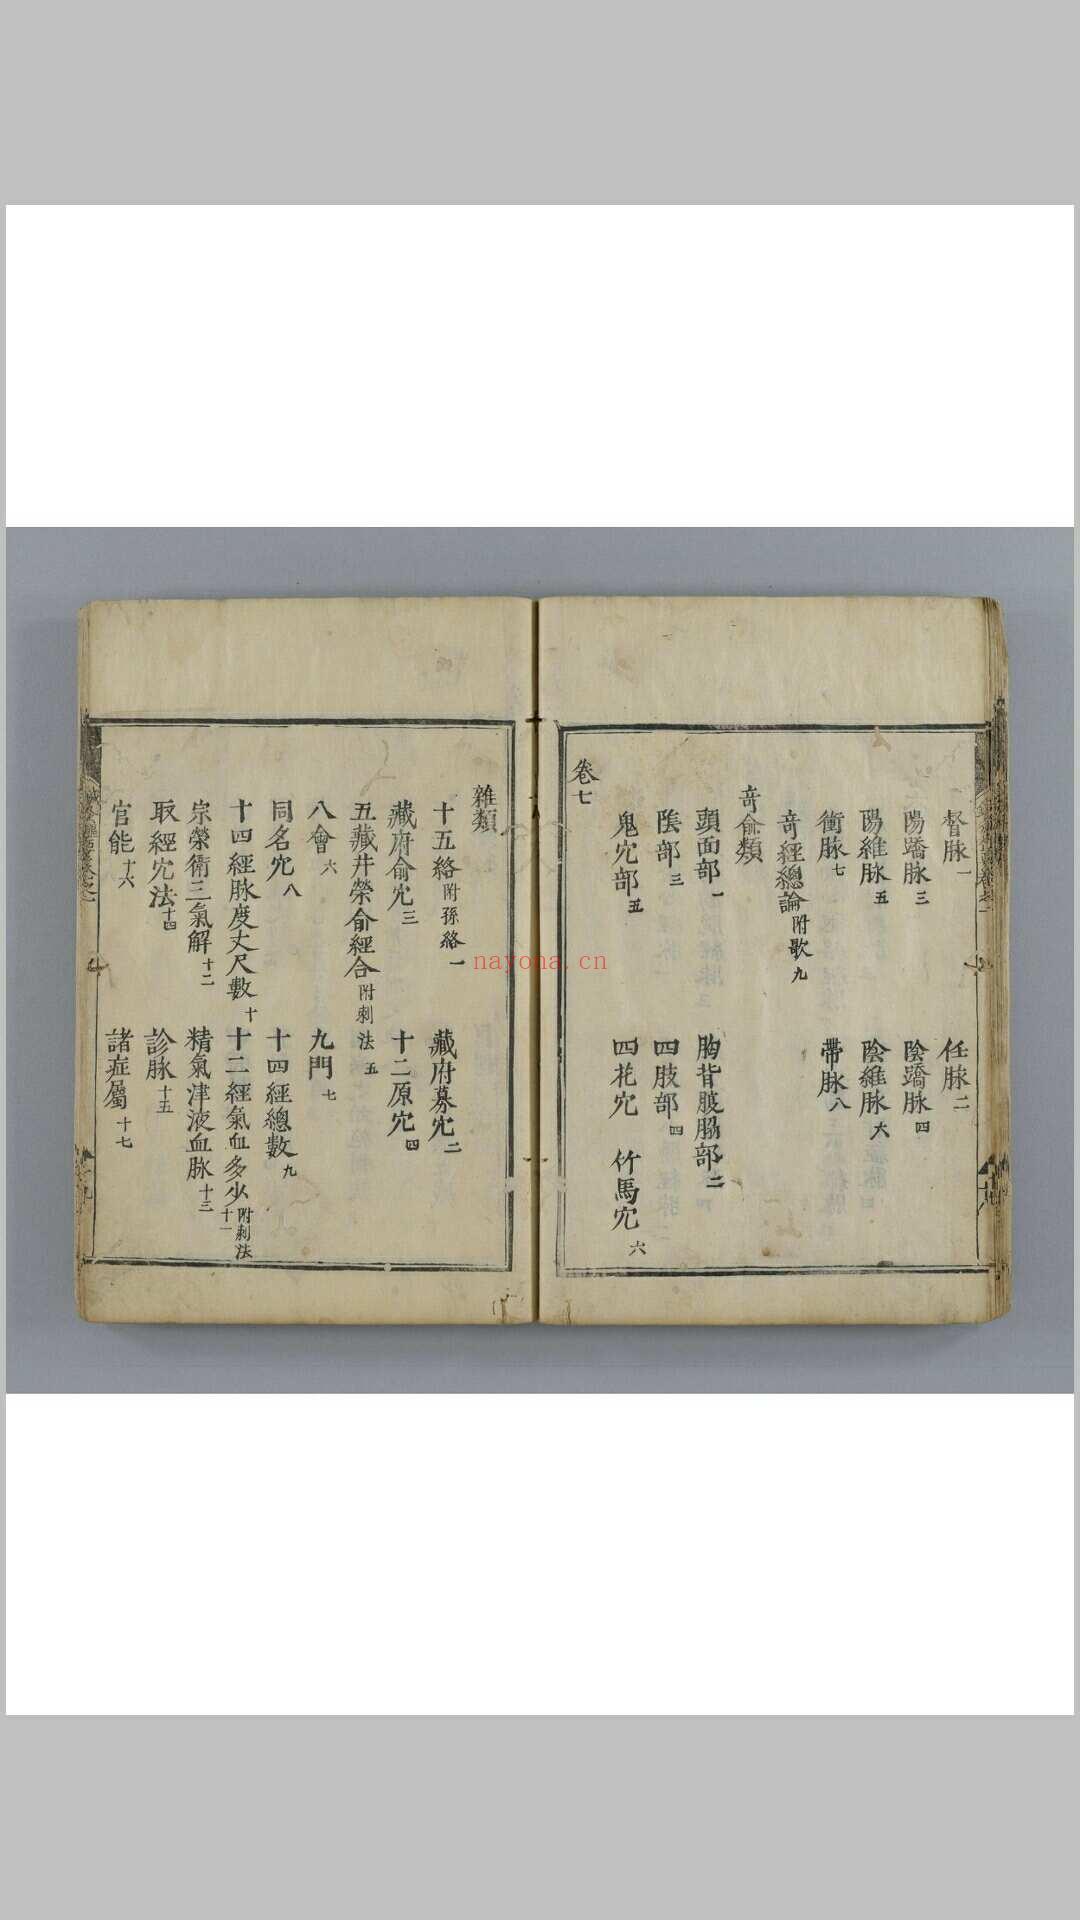 督脉一 任脉二
陽蹻脉三 陰蹻脉四
陽維脉五 陰維脉六
衝脉七 帶脉八
奇經總論附歌九
奇俞類
頭面部一 胸背腹脇部二
陰部三 四肢部四
鬼穴部五 四花穴 竹馬穴六
卷七
雜類
十五絡附孫絡一 藏府募穴二
藏府俞穴三 十二原穴四
五藏井榮俞經合附刺法五
八會六 九門七
同名穴八 十四經總數九
十四經脉度丈尺數十 十二經氣血多少附刺法十一
宗榮衛三氣解十二 精氣津液血脉十三
取經穴法十四 診脉十五
官能十六 諸症屬十七
nayona.cn